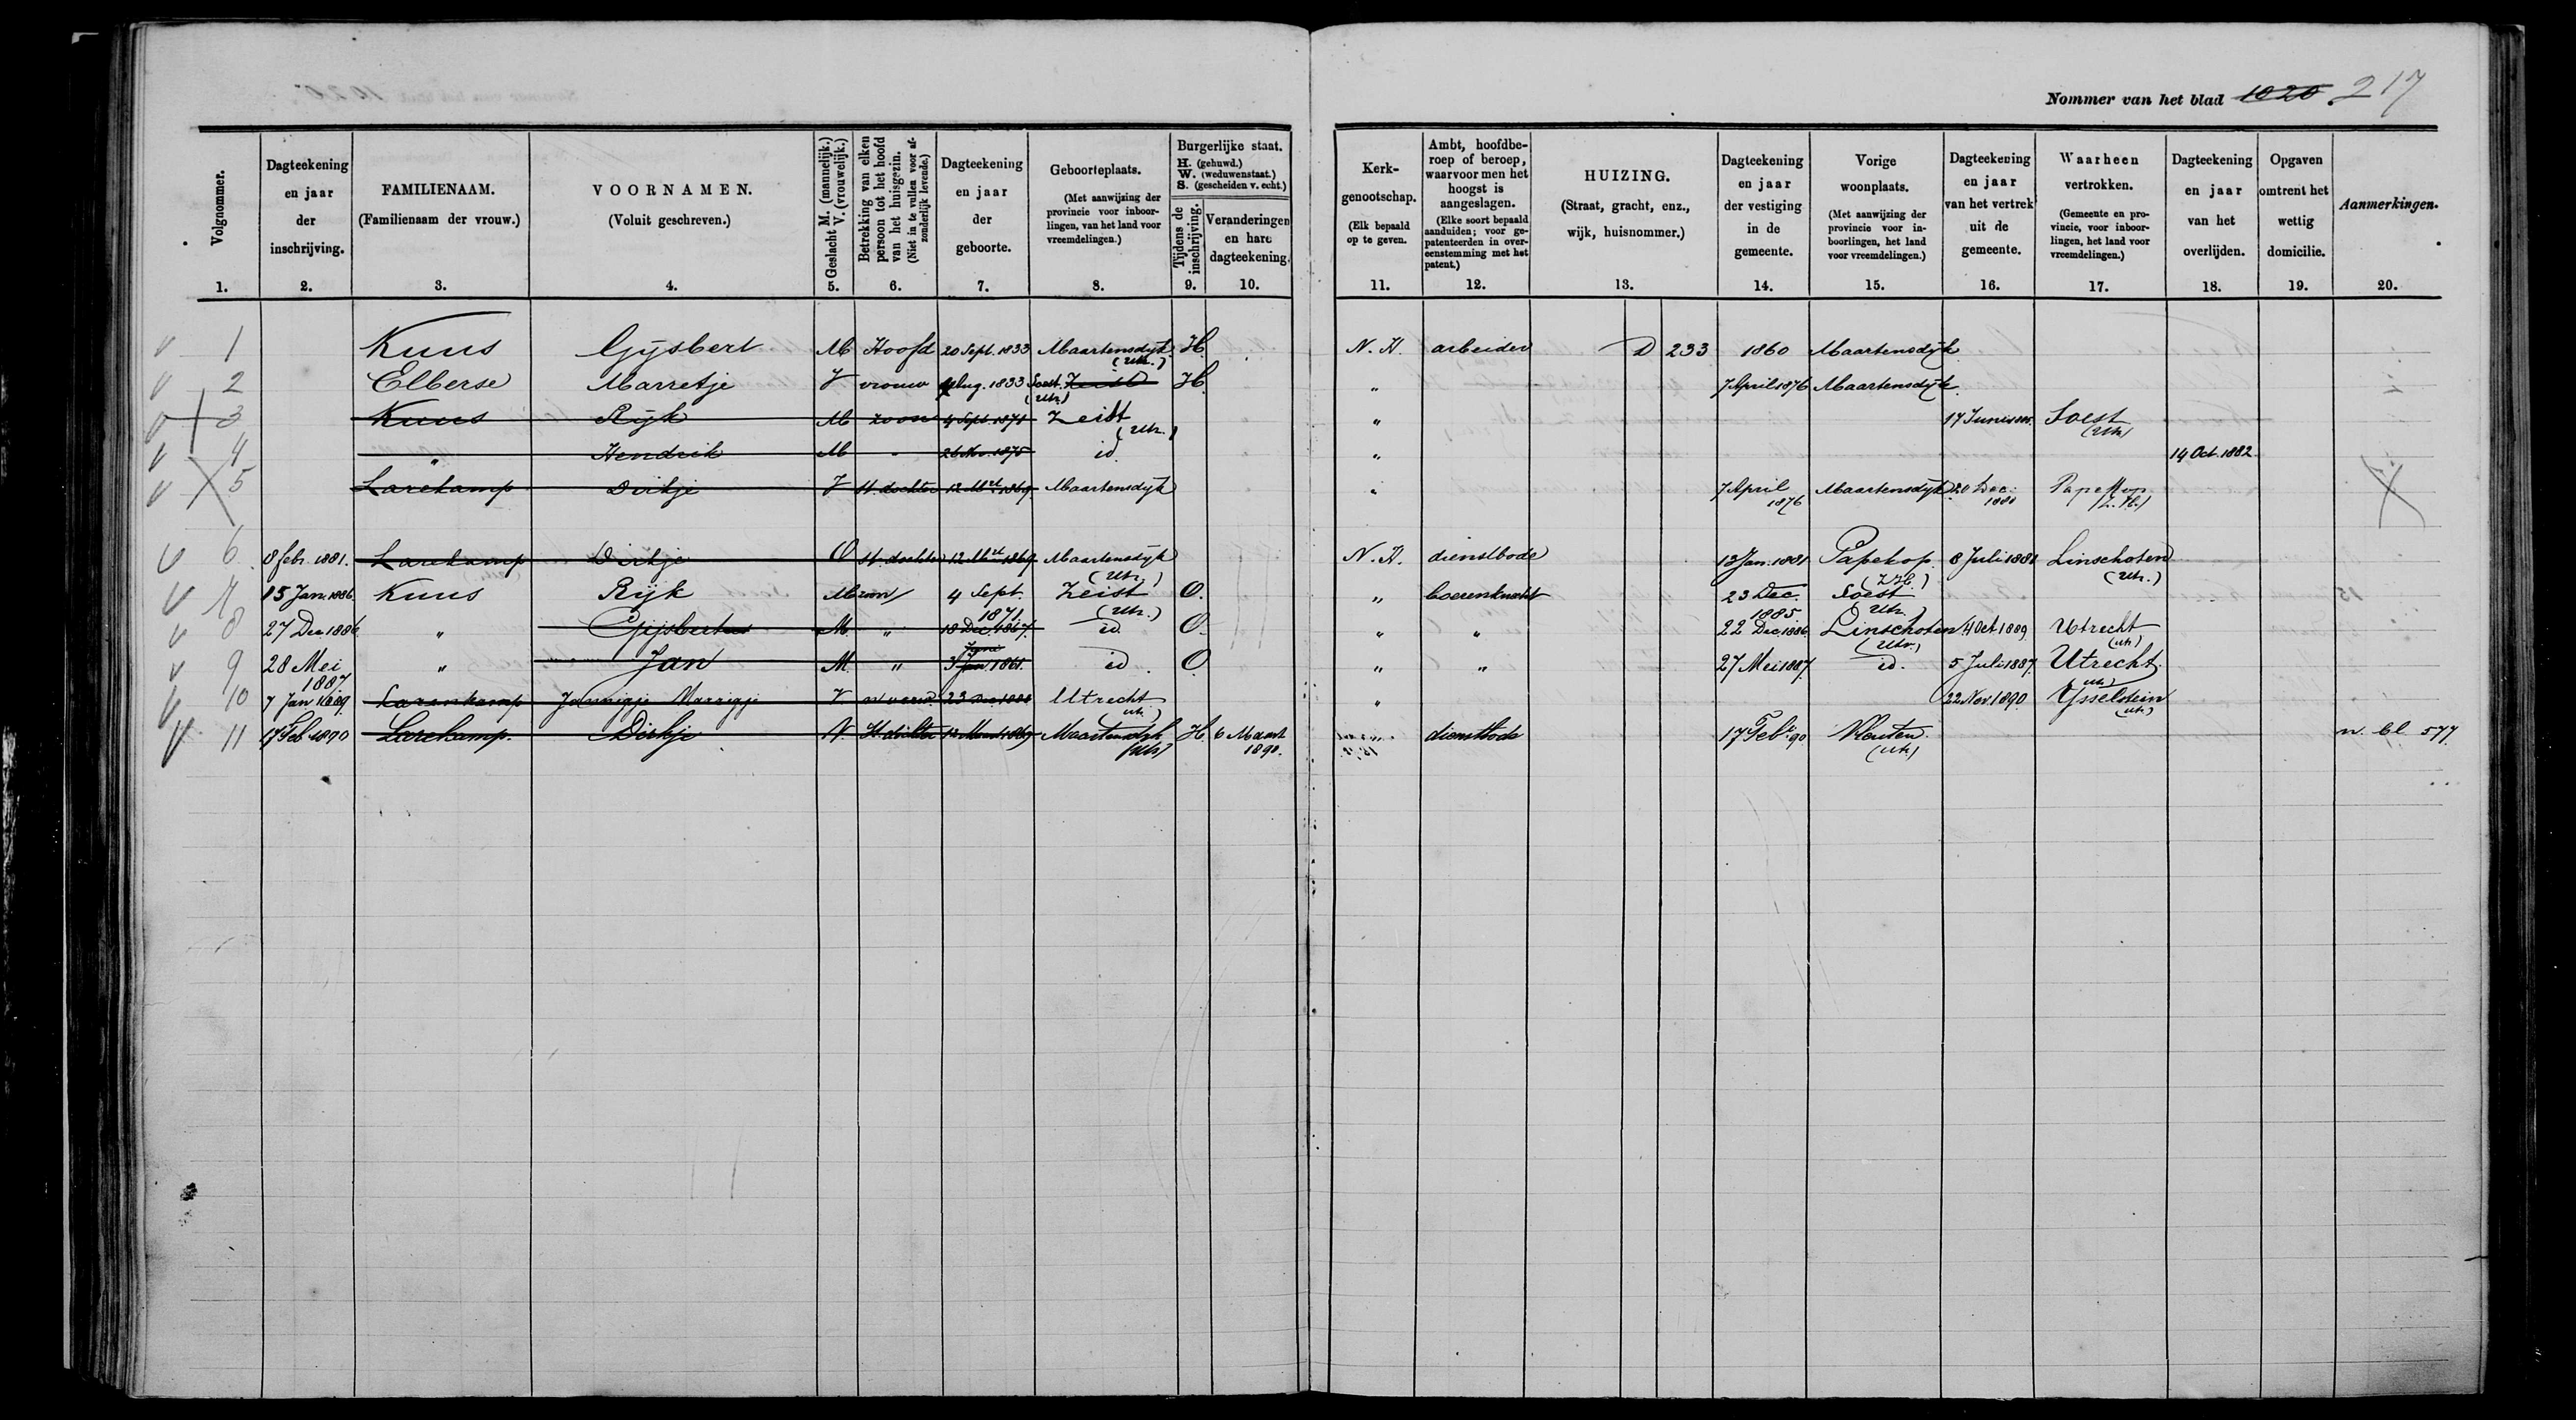 Nommer van het blad 1020. 217
Volgnommer. 1.
Dagteekening en jaar der inschrijving. 2.
FAMILIENAAM. (Familienaam der vrouw.) 3.
VOORNAMEN. (Voluit geschreven.) 4.
Geslacht M. (mannelijk.) V. (vrouwelijk.) 5.
Betrekking van elken persoon tot het hoofd van het huisgezin. (Niet in te vullen voor afzonderlijk levende.) 6.
Dagteekening en jaar der geboorte. 7.
Geboorteplaats. (Met aanwijzing der provincie voor inboorlingen, van het land voor vreemdelingen.) 8.
Burgerlijke staat. H. (gehuwd.) W. (weduwenstaat.) S. (gescheiden v. echt.)
Tijdens de inschrijving. 9.
Veranderingen en hare dagteekening. 10.
Kerkgenootschap. (Elk bepaald op te geven. 11.
Ambt, hoofdberoep of beroep, waarvoor men het hoogst is aangeslagen. (Elke soort bepaald aanduiden; voor gepatenteerden in overeenstemming met het patent.) 12.
HUIZING. (Straat, gracht, enz., wijk, huisnommer.) 13.
Dagteekening en jaar der vestiging in de gemeente. 14.
Vorige woonplaats. (Met aanwijzing der provincie voor inboorlingen, het land voor vreemdelingen.) 15.
Dagteekening en jaar van het vertrek uit de gemeente. 16.
Waarheen vertrokken. (Gemeente en provincie, voor inboorlingen, het land voor vreemdelingen.) 17.
Dagteekening en jaar van het overlijden. 18.
Opgaven omtrent het wettig domicilie. 19.
Aanmerkingen. 20.
1 Kuus Gijsbert M Hoofd 20 Sept. 1833 Maartensdijk (Utr.) H. N.H. arbeider D 233 1860 Maartensdijk
2 Elberse Marretje V vrouw Aug. 1833 Soest. Zeist (Utr.) H. " 7 April 1876 Maartensdijk
3 Kuus Rijk M zoon 4 Sept. 1871 Zeist (Utr.) " 17 Juni Soest (Utr)
4 " Hendrik M " 26 Nov. 1875 id. " 14 Oct. 1882
5 Larekamp Dirkje V St. dochter 12 Mrt 1869 Maartensdijk " 7 April 1876 Maartensdijk 20 Dec. 1880 Papekop (Z.H.)
6 8 febr. 1881. Larekamp Dirkje St. dochter 12 Mrt 1869 Maartensdijk (Utr.) N.H. dienstbode 13 Jan. 1881 Papekop. (Z.H.) 8 Juli 1881 Linschoten (Utr.)
7 15 Jan. 1886. Kuus Rijk M zoon 4 Sept. 1871 Zeist (Utr.) O. " boerenknecht 23 Dec. 1885 Soest (Utr.)
8 27 Dec 1886 " Gijsbertus M. " 18 Dec. 1867 id O. " " 22 Dec. 1886 Linschoten (Utr.) 4 Oct. 1889 Utrecht (utr)
9 28 Mei 1887 " Jan M. " 3 Jan. 1861 id. O. " " 27 Mei 1887 id. 5 Juli 1887 Utrecht. (utr)
10 7 Jan 1889 Larenkamp Jannigje Marrigje V. 23 Dec 1888 Utrecht (utr.) " 22 Nov. 1890 IJsselstein (utr)
11 17 Feb 1890 Larekamp. Dirkje V. St dochter 12 Maart 1869 Maartensdijk (Utr) H. 6 Maart 1890. dienstbode 17 Feb. 90 Vleuten. (utr) n. bl 577